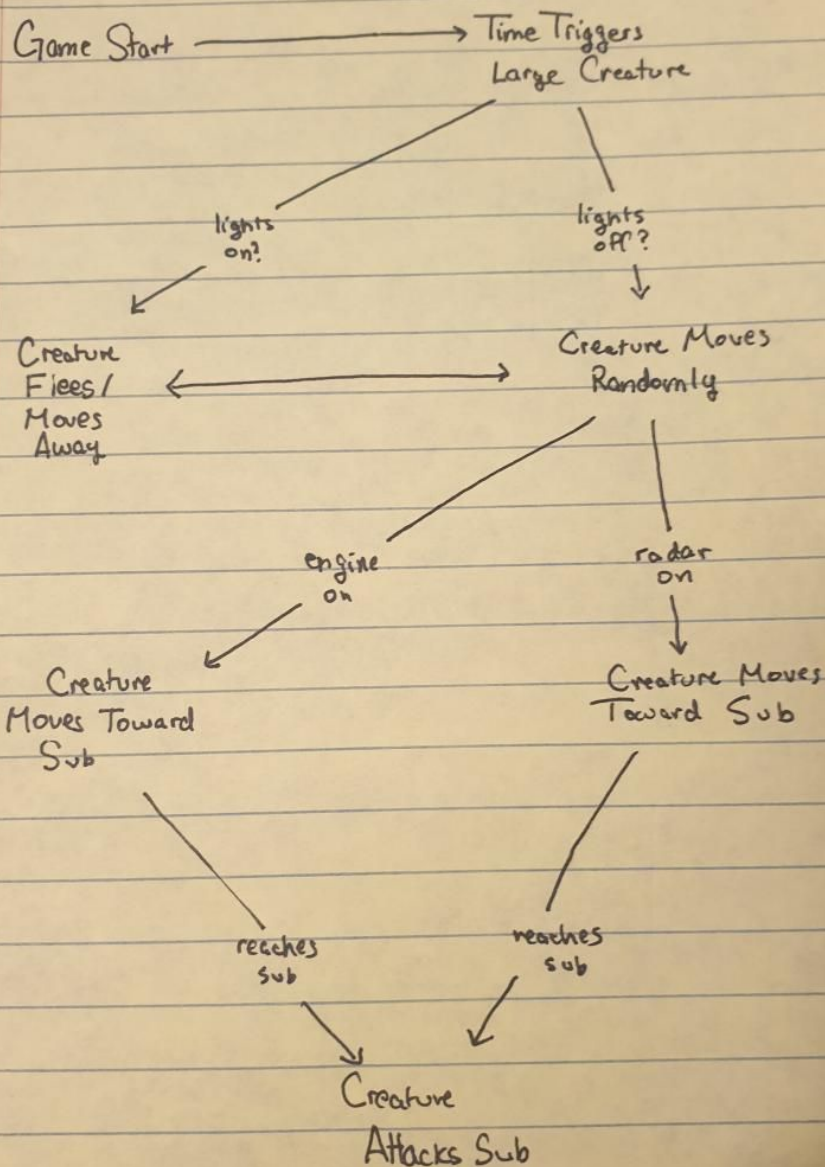 Game Start
Time Triggers
Large Creature
lights
on?
lights
off?
Creature
Flees/
Moves
Away
Creature Moves
Randomly
engine
on
radar
on
Creature
Moves Toward
Sub
Creature Moves
Toward Sub
reaches
sub
reaches
sub
Creature
Attacks Sub